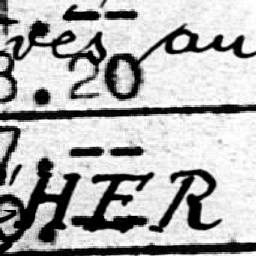 ves au
3.20
HER